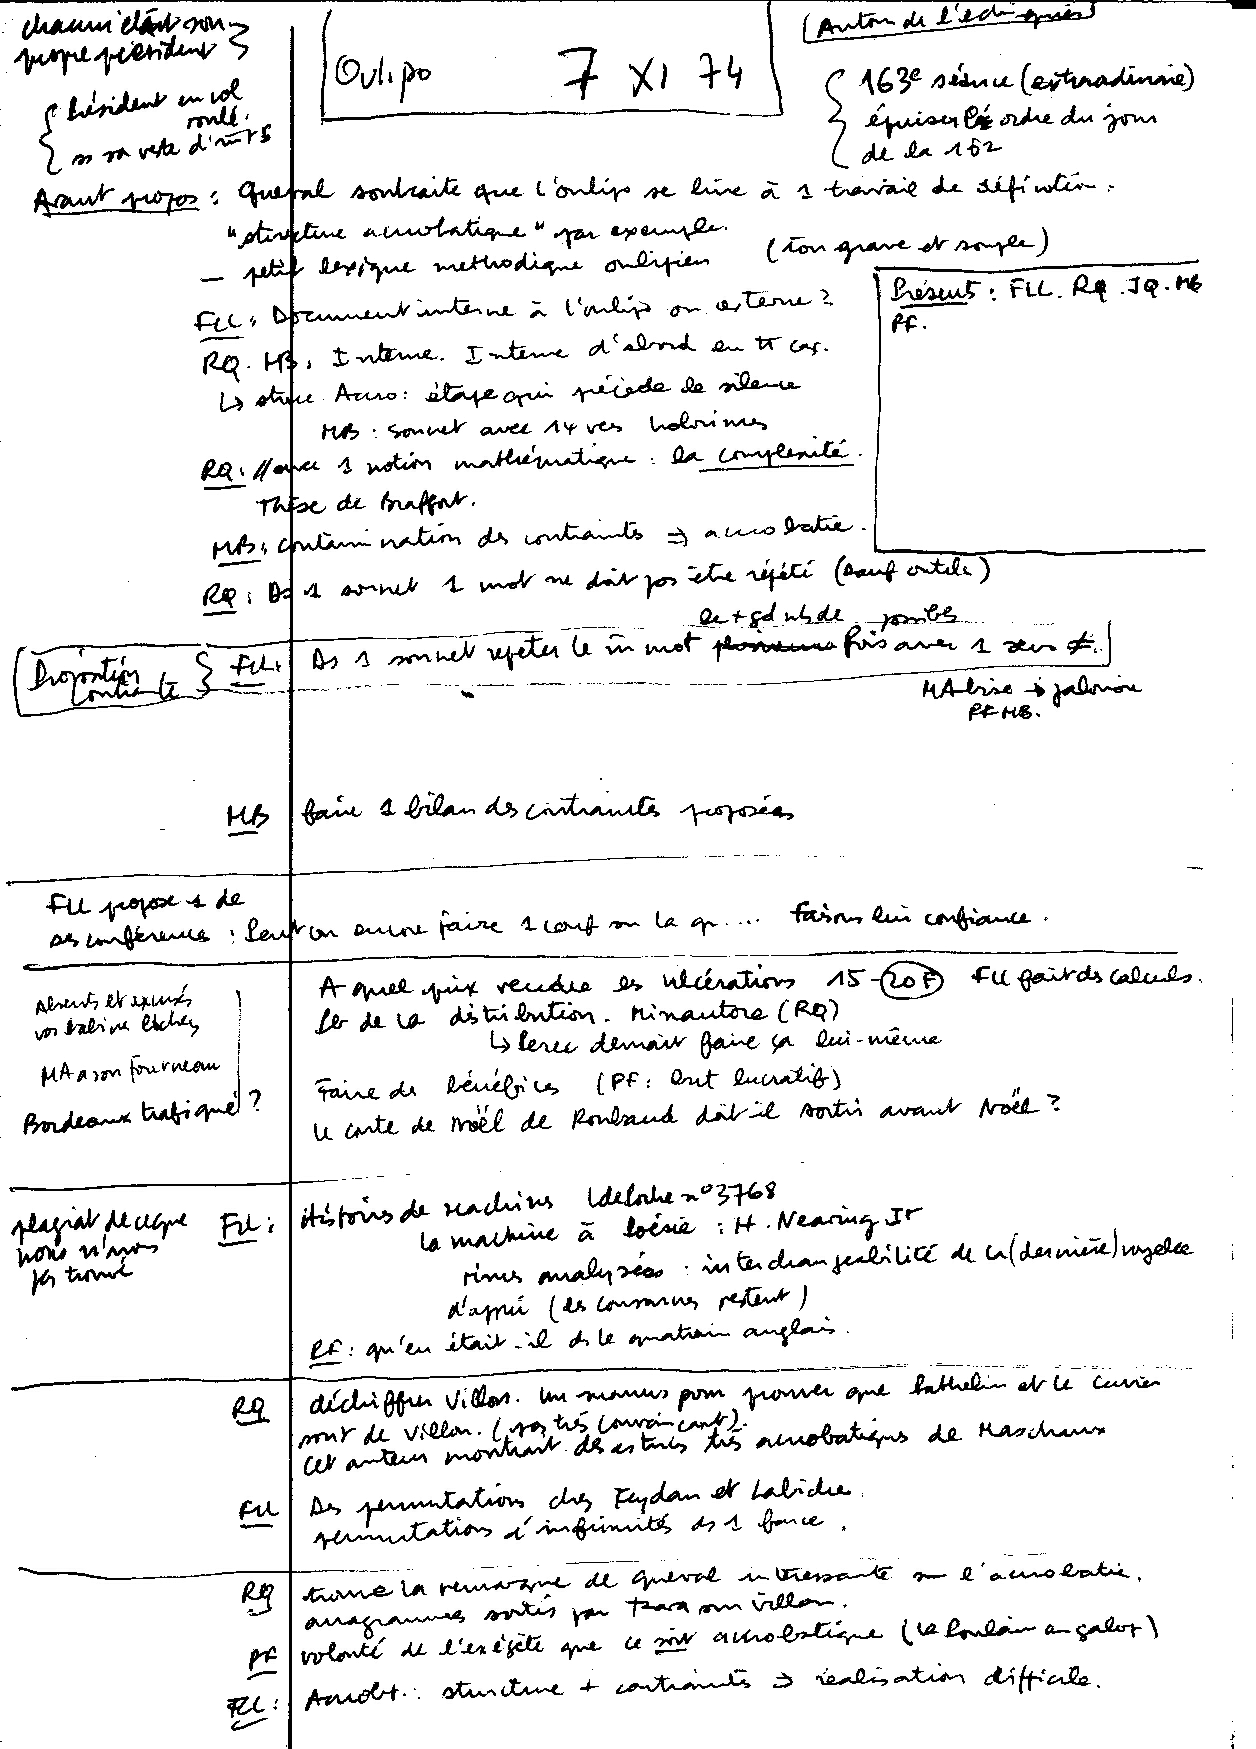 chacun étant son
propre président
Président en col
roulé.
ss sa veste d'
Oulipo 7 XI 74
(Autour de l'échiquier)
163e séance (extraordinaire)
épuiser l'ordre du jour
de la 162
Avant propos : Queval souhaite que l'oulipo se livre à 1 travail de définition.
"structure acrobatique" par exemple.
— petit lexique methodique oulipien (ton grave et souple)
Présents : FLL. RQ. JQ. MB
PF.
FLL : Document interne à l'oulipo ou externe ?
RQ. MB : Interne. Interne d'abord en tt cas.
↳ struc. Acro : étape qui précède le silence
MB : sonnet avec 14 vers holorimes
RQ : // avec 1 notion mathématique : la complexité.
Thèse de Braffort.
MB : contamination des contraintes ⇒ acrobatie.
RQ : Ds 1 sonnet 1 mot ne doit pas être répété (sauf outils)
le + gd nb de possibles
Proposition
contrainte
FLL : Ds 1 sonnet répéter le m mot plusieurs fois avec 1 sens ≠.
MA → jalousie
PF MB.
MB faire 1 bilan des contraintes proposées
FLL propose 1 de
ses conférences : Peut on encore faire 1 conf sur la q.... faisons lui confiance.
Absents et excusés
MA a son fourneau
Bordeaux trafiqué ?
A quel prix vendre les ulcérations 15-20 F FLL fait des calculs.
Pb de la distribution. Minautore (RQ)
↳ Perec devrait faire ça lui-même
Faire des bénéfices (PF : but lucratif)
Le conte de Noël de Roubaud doit il sortir avant Noël ?
plagiat de ce que
nous n'avons
pas trouvé
FLL : Histoires de machines n° 3768
la machine à Poésie : H. Nearing Jr
rimes analysées : interchangeabilité de la (dernière) voyelle
d'appui (les consonnes restent)
PF : qu'en était-il ds le quatrain anglais.
RQ déchiffrer Villon. Un pour prouver que Pathelin et le
sont de Villon. (pas très convaincant).
Cet auteur montrait des astuces très acrobatiques de
FLL Des permutations chez Feydau et Labiche
permutations d'infirmités ds 1 farce.
RQ trouve la remarque de Queval intéressante sur l'acrobatie.
anagrammes sortis par Tzara sur Villon.
PF volonté de l'exégète que ce soit acrobatique (Le Poulain au galop)
FLL : Acrobt. : structure + contraintes ⇒ réalisation difficile.